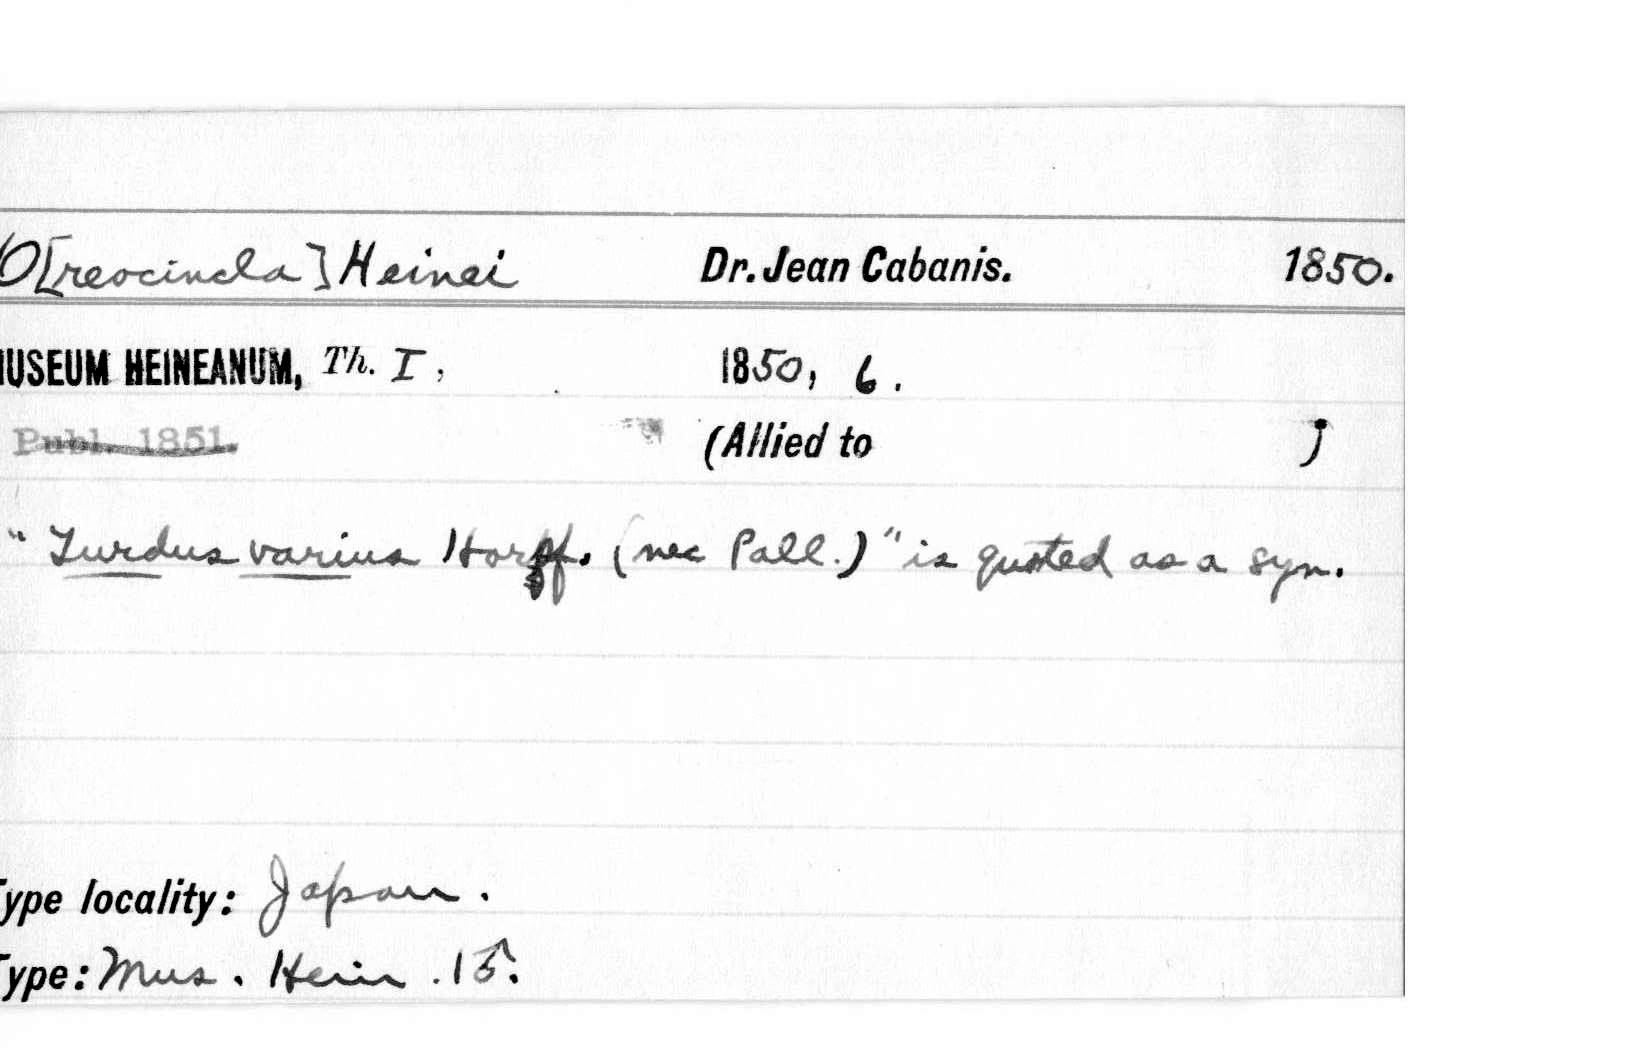 O[reocincla] Heinei Dr. Jean Cabanis. 1850.
MUSEUM HEINEANUM, Th. I, 1850, 6.
Publ. 1851.
(Allied to )
"Turdus varius Horsf. (nec Pall.)" is quoted as a syn.
Type locality: Japan.
Type: Mus. Hein. 15.